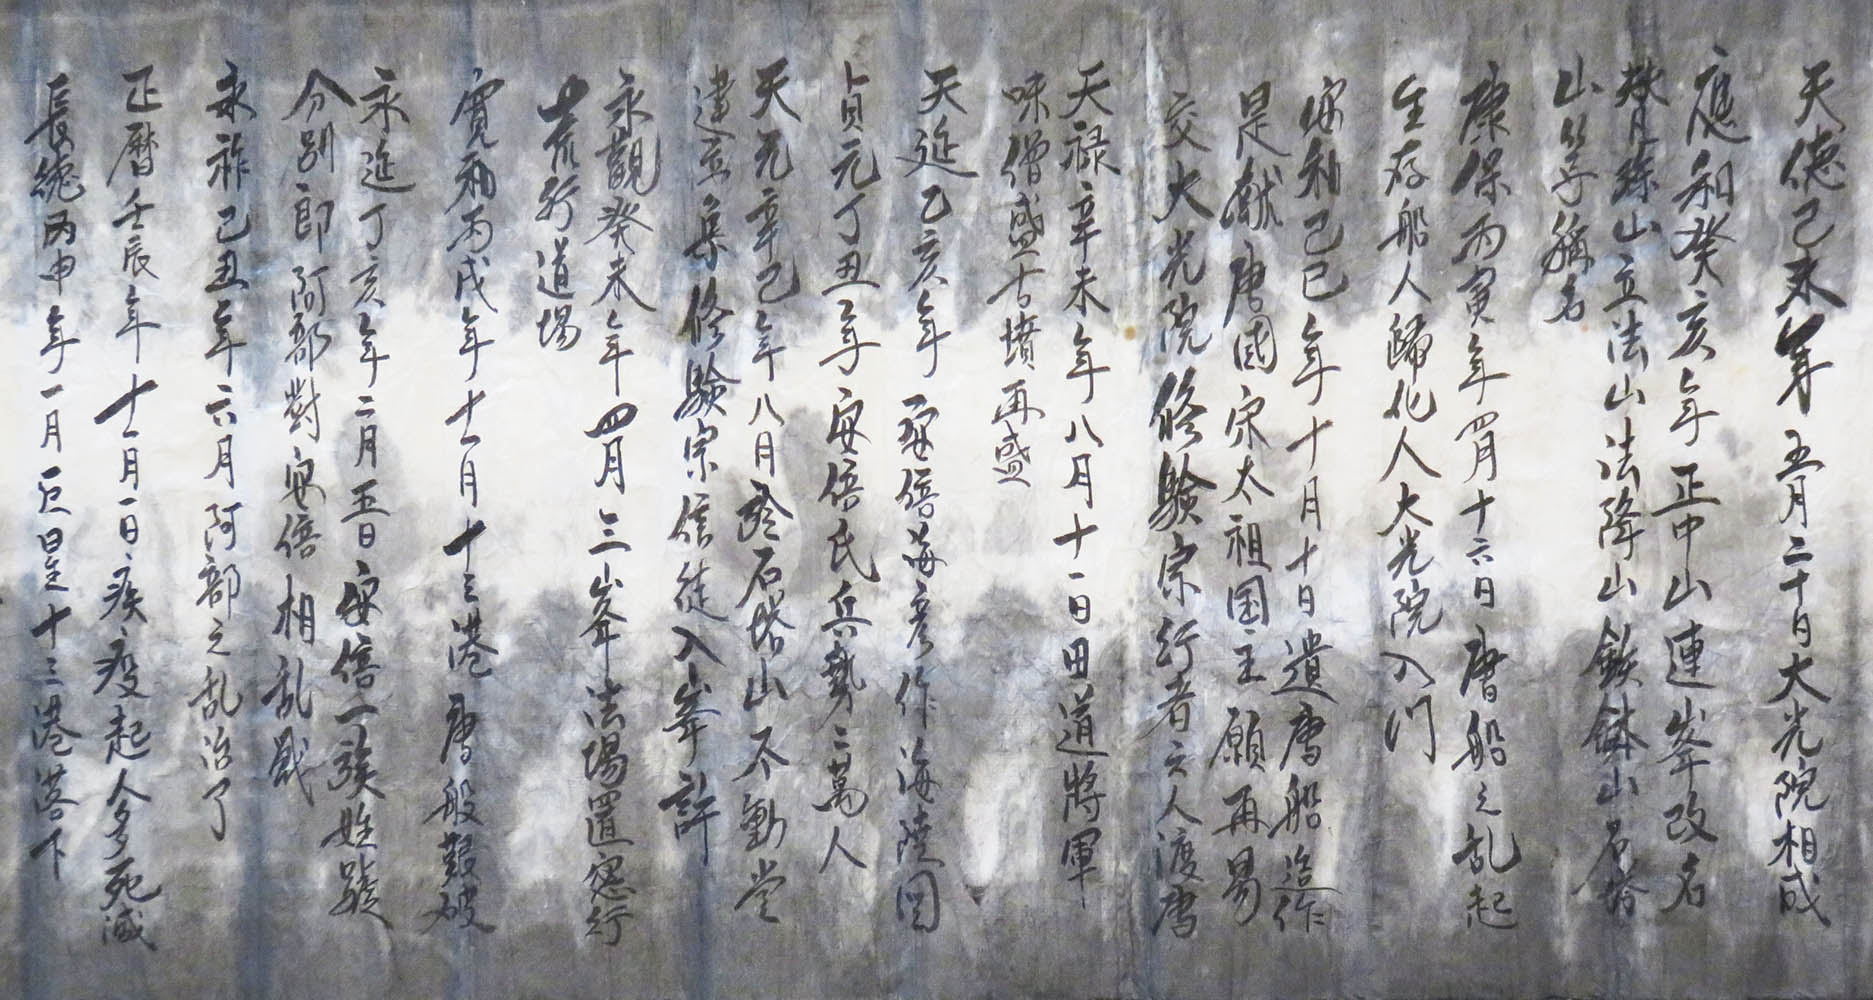 天徳己未年五月二十日大光院相成
應和癸亥年正中山連峯改名
梵珠山立法山法降山鉄鉢山石塔
山等稱名
康保丙寅年四月十六日唐船之乱起
生存船人歸化人大光院入門
安和己巳年十月十日遺唐船造作
是献唐国宗太祖国主願再昜
交大光院修験宗行者六人渡唐
天禄辛未年八月十一日田道將軍
味僧盛古墳再盛
天延乙亥年安倍海彦作海陸図
貞元丁丑年安倍氏兵勢二萬人
天元辛巳年八月 石塔山不動堂
建立集修験宗信徒入峯許
永觀癸未年四月三峯法場置窓行
荒行道場
寛和丙戌年十一月十三港唐船難破
永延丁亥年二月五日安倍一族姓
分別即阿部對安倍相乱戰
永祚己丑年六月阿部之乱治了
正暦壬辰年十一月一日疾疫起人多死滅
長徳丙申年一月 星十三港落下